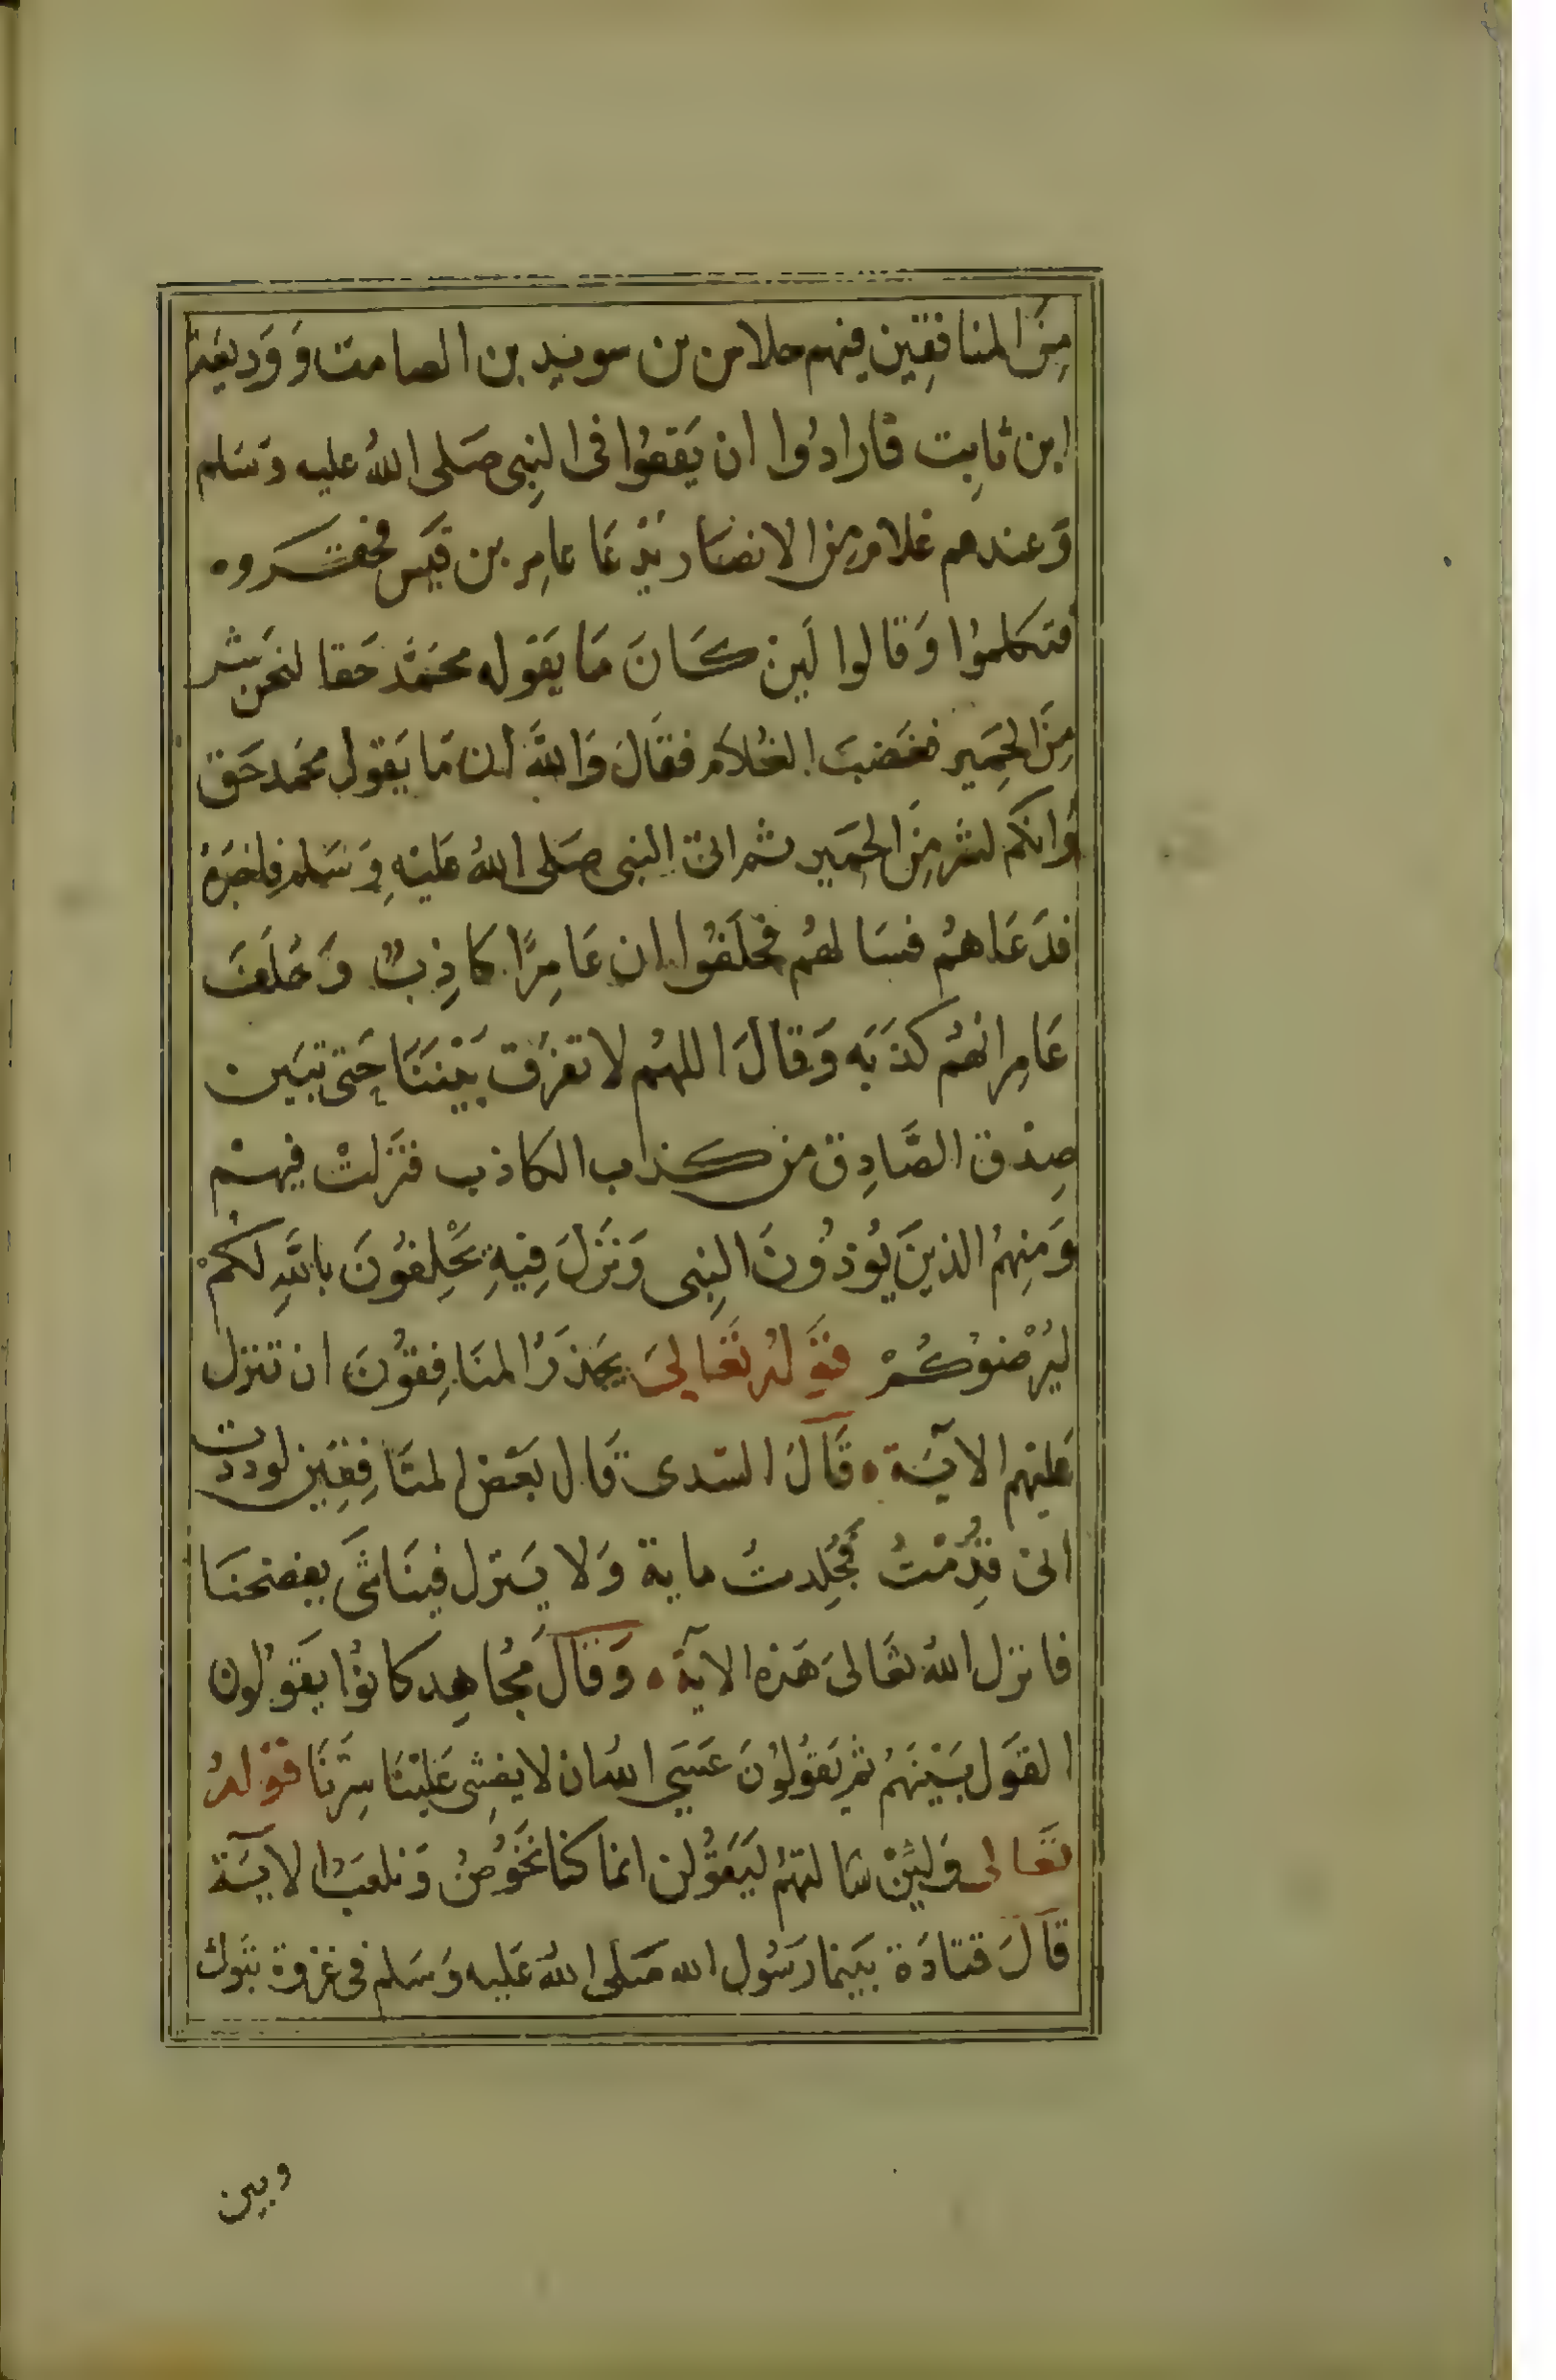 مِنَ المنافِقِين فيهم حلاس بن سويد بن الصامت وَوَديعَة
ابن ثابِت فارادُوا ان يَقعُوا فى النِبى صَلى اللهُ عليه وَسَلم
وَعندهم غلام مِن الانصَار يُدعَا عامِر بن قيَس فحقـَـروه
فتكلموُا وَقالوا لَين كَـانَ مَا يَقوله محمَّد حَقا لنحن شر
مِنَ الحِمَير فغَضبَ الغُلام فقالَ وَاللهَّ ان مَا يَقول محَمد حَق
وانكم لشر مِنَ الحَمِير ثم اتى النبى صَلى اللهُ عليْهِ وَسَلم فاخبَرهُ
فدَعَاهُم فسَالهُم فحلَفُوا ان عَامِرًا كاذِبٌ وَحَلَفَ
عَامِر انهُم كذَبَه وَقالَ اللهُم لا تفرَق بَيْننَا حَتى تبَين
صِدْق الصَّادِق من كـذاب الكاذب فنَزلتْ فيهـْم
وَمنِهمُ الذينَ يُوذُونَ النِبى وَنَزلَ فِيهِ يَحْلِفوُنَ باللهَّ لكمْ
ليُرْضوُكـُمْ قَولهُ تَعَالىَ يَحذَرُ المنَافِقوُنَ ان تنزل
عَليهم الآيَــة ٥ قَالَ السَدى قَال بَعَض المنَافِقِين لوددت
انى قدِّمْتُ فَجُلِدتُ ماية وَلا يَنزل فينَا شَى يفضحنَا
فانزل اللهُ تعَالىَ هَذه الآية ٥ وَقَالَ مُجاهِد كانوُا يقَولون
القَول بَيْنَهمُ ثم يَقوُلوُنَ عَسَى اللهُ ان لا يفشِى عَليْنَا سِرَّنَا قوْلهُ
تعَالى وَلَئِنْ سَالتهمُ ليَقوُلن انما كنا نخَوُضُ وَنلعَبُ الآيَة
قَالَ قتادَة بَينما رَسُول الله صَلى اللهُ عَليه وَسَلم فى غزوة تبَوك
وبين